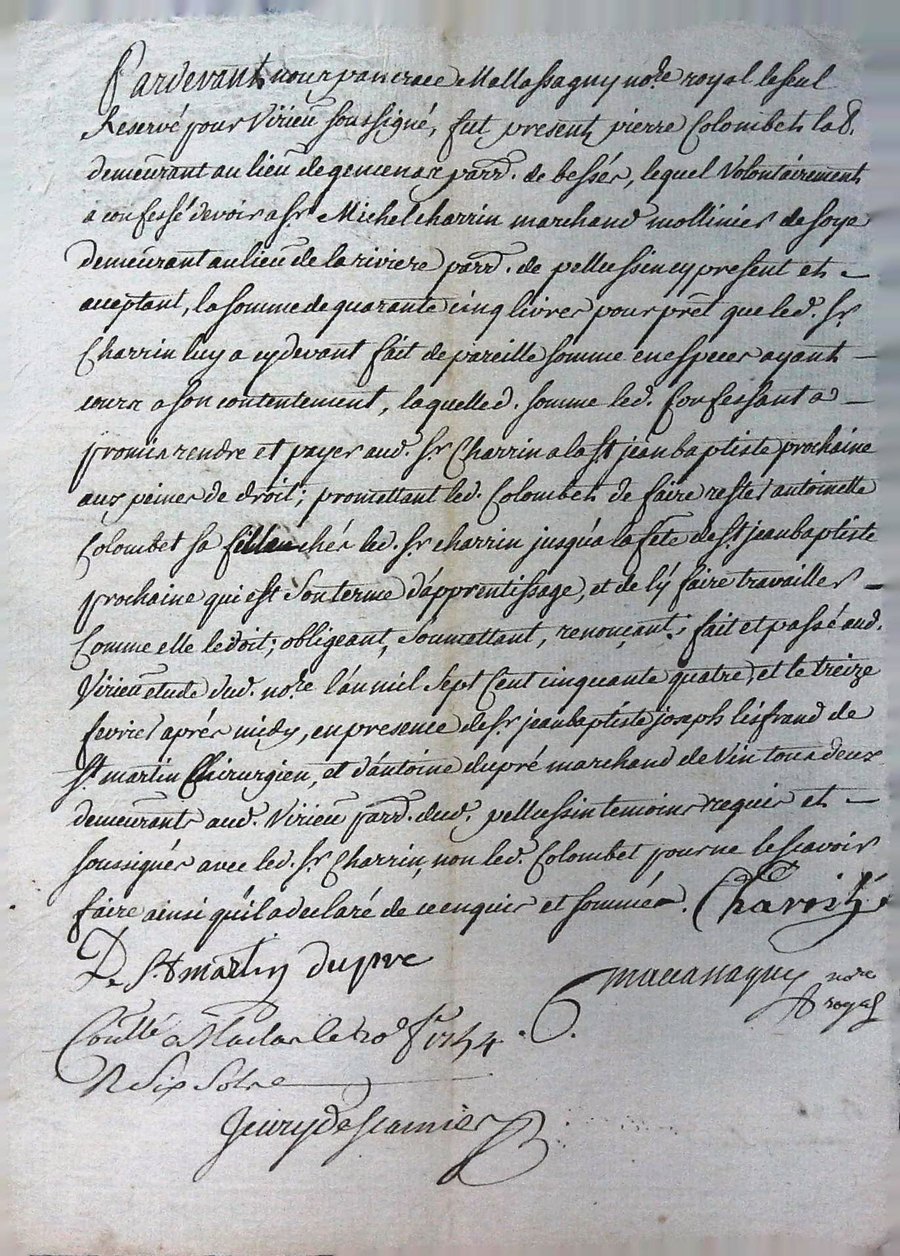 Pardevant nous pancrace Mallassagny no.re royal le seul
Reservé pour Virieu soussigné, fut present pierre Colombet lab.
demeurant au lieu de gemenas parr. de bessés, lequel Volontairement
a confessé devoir a Sr. Michel charrin marchand mollinier de soye
demeurant au lieu de la riviere parr. de pellussin cy present et
acceptant, la somme de quarante cinq livres pour prêt que led. Sr.
Charrin luy a cydevant fait de pareille somme en especes ayant
cours a son contentement, laquelled. somme led. Confessant a
promis rendre et payer aud. Sr. Charrin a la St. jean baptiste prochaine
aux peines de droit; promettant led. Colombet de faire rester antoinette
Colombet sa fille chés led. Sr. charrin jusqu'a la féte de St. jean baptiste
prochaine qui est son terme d'apprentissage, et de l'y faire travailler
Comme elle le doit; obligeant, soumettant, renonçant; fait et passé aud.
Virieu étude dud. no.re l'an mil sept Cent cinquante quatre, et le treize
fevrier aprés midy, en presence de Sr. jean baptiste joseph lisfrand de
St. martin Chirurgien, et d'antoine dupré marchand de Vin tous deux
demeurants aud. Virieu parr. dud. pellussin temoins requis et
soussignés avec led. Sr. Charrin, non led. Colombet pour ne le scavoir
faire ainsi qu'il a declaré de ce enquis et sommés. Charrin
De St martin dupré
Mallassagny no.re
royal
Conllé a Maclas le 20e f.r 1754.
R six sols